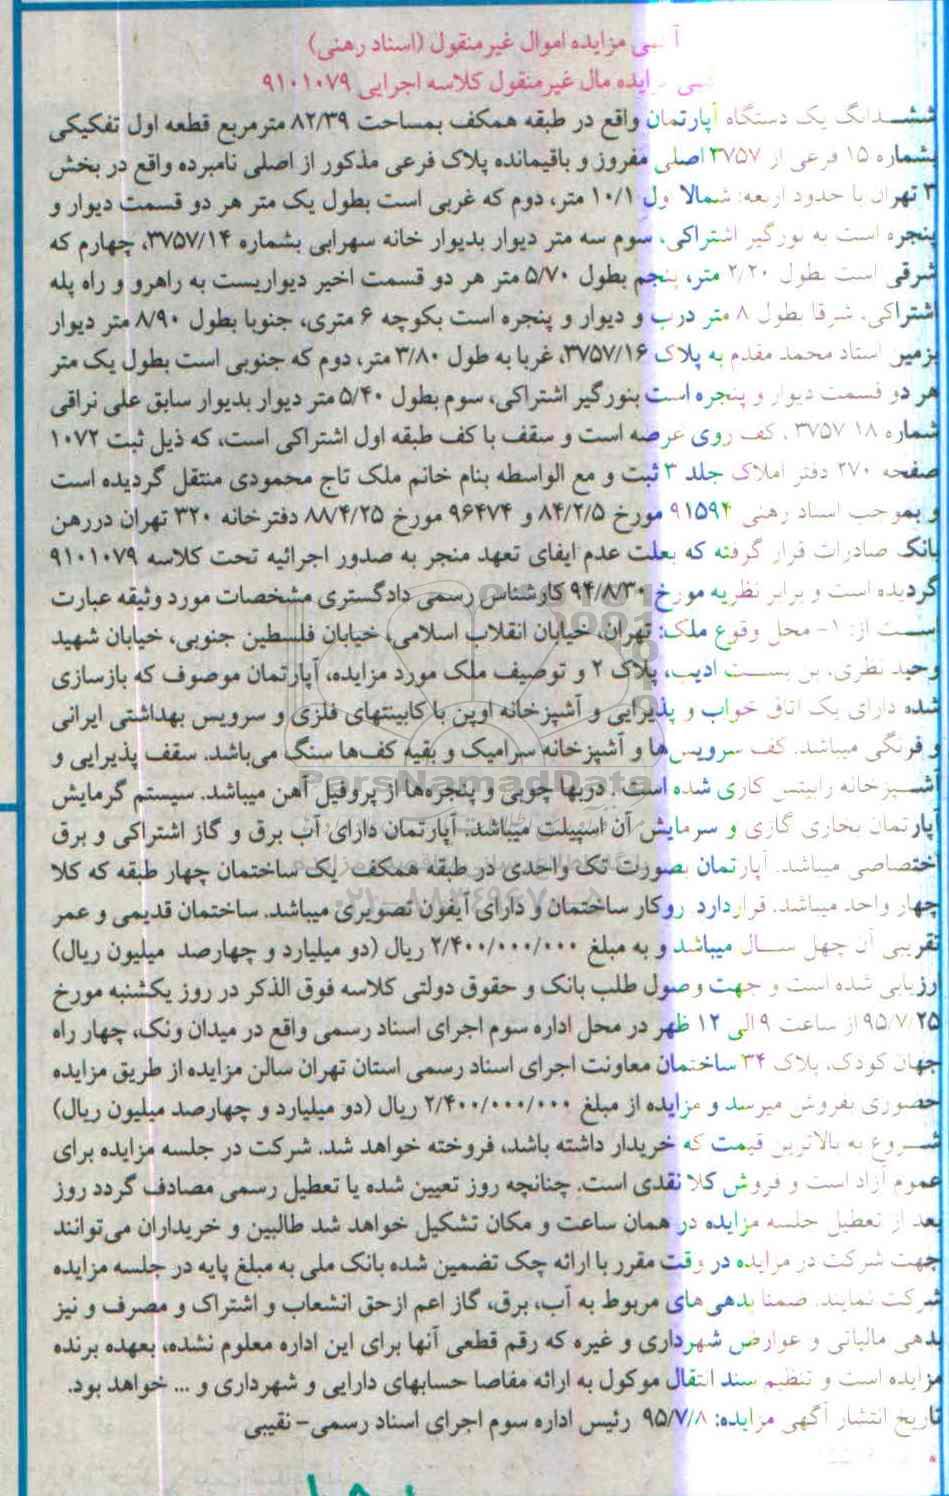 مزایده اموال غیرمنقول (اسناد رهنی)
مزایده مال غیرمنقول کلاسه اجرایی ۹۱۰۱۰۷۹
ششدانگ یک دستگاه آپارتمان واقع در طبقه همکف بمساحت ۸۲/۳۹ مترمربع قطعه اول تفکیکی
بشماره ۱۵ فرعی از ۳۷۵۷ اصلی مفروز و باقیمانده پلاک فرعی مذکور از اصلی نامبرده واقع در بخش
۳ تهران با حدود اربعه: شمالا اول ۱۰/۱ متر، دوم که غربی است بطول یک متر هر دو قسمت دیوار و
پنجره است به نورگیر اشتراکی، سوم سه متر دیوار بدیوار خانه سهرابی بشماره ۳۷۵۷/۱۴، چهارم که
شرقی است بطول ۲/۲۰ متر، پنجم بطول ۵/۷۰ متر هر دو قسمت اخیر دیواریست به راهرو و راه پله
اشتراکی، شرقا بطول ۸ متر درب و دیوار و پنجره است بکوچه ۶ متری، جنوبا بطول ۸/۹۰ متر دیوار
بزمین استاد محمد مقدم به پلاک ۳۷۵۷/۱۶، غربا به طول ۳/۸۰ متر، دوم که جنوبی است بطول یک متر
هر دو قسمت دیوار و پنجره است بنورگیر اشتراکی، سوم بطول ۵/۴۰ متر دیوار بدیوار سابق علی نراقی
شماره ۱۸ ۳۷۵۷ ، کف روی عرصه است و سقف با کف طبقه اول اشتراکی است، که ذیل ثبت ۱۰۷۲
صفحه ۲۷۰ دفتر املاک جلد ۳ ثبت و مع الواسطه بنام خانم ملک تاج محمودی منتقل گردیده است
و بموجب اسناد رهنی ۹۱۵۹۴ مورخ ۸۴/۲/۵ و ۹۶۴۷۴ مورخ ۸۸/۴/۲۵ دفترخانه ۳۲۰ تهران دررهن
بانک صادرات قرار گرفته که بعلت عدم ایفای تعهد منجر به صدور اجرائیه تحت کلاسه ۹۱۰۱۰۷۹
گردیده است و برابر نظریه مورخ ۹۴/۸/۳۰ کارشناس رسمی دادگستری مشخصات مورد وثیقه عبارت
است از: ۱- محل وقوع ملک: تهران، خیابان انقلاب اسلامی، خیابان فلسطین جنوبی، خیابان شهید
وحید نظری، بن بست ادیب، پلاک ۲ و توصیف ملک مورد مزایده، آپارتمان موصوف که بازسازی
شده دارای یک اتاق خواب و پذیرایی و آشپزخانه اوپن با کابینتهای فلزی و سرویس بهداشتی ایرانی
و فرنگی میباشد. کف سرویس‌ها و آشپزخانه سرامیک و بقیه کف‌ها سنگ می‌باشد. سقف پذیرایی و
آشپزخانه رابیتس کاری شده است. دربها چوبی و پنجره‌ها از پروفیل آهن میباشد. سیستم گرمایش
آپارتمان بخاری گازی و سرمایش آن اسپیلت میباشد. آپارتمان دارای آب برق و گاز اشتراکی و برق
اختصاصی میباشد. آپارتمان بصورت تک واحدی در طبقه همکف یک ساختمان چهار طبقه که کلا
چهار واحد میباشد. قراردارد. روکار ساختمان و دارای آیفون تصویری میباشد. ساختمان قدیمی و عمر
تقریبی آن چهل سال میباشد و به مبلغ ۲/۴۰۰/۰۰۰/۰۰۰ ریال (دو میلیارد و چهارصد میلیون ریال)
ارزیابی شده است و جهت وصول طلب بانک و حقوق دولتی کلاسه فوق الذکر در روز یکشنبه مورخ
۹۵/۷/۲۵ از ساعت ۹ الی ۱۲ ظهر در محل اداره سوم اجرای اسناد رسمی واقع در میدان ونک، چهار راه
جهان کودک، پلاک ۳۴ ساختمان معاونت اجرای اسناد رسمی استان تهران سالن مزایده از طریق مزایده
حضوری بفروش میرسد و مزایده از مبلغ ۲/۴۰۰/۰۰۰/۰۰۰ ریال (دو میلیارد و چهارصد میلیون ریال)
شروع به بالاترین قیمت که خریدار داشته باشد، فروخته خواهد شد. شرکت در جلسه مزایده برای
عموم آزاد است و فروش کلا نقدی است. چنانچه روز تعیین شده یا تعطیل رسمی مصادف گردد روز
بعد از تعطیل جلسه مزایده در همان ساعت و مکان تشکیل خواهد شد طالبین و خریداران می‌توانند
جهت شرکت در مزایده در وقت مقرر با ارائه چک تضمین شده بانک ملی به مبلغ پایه در جلسه مزایده
شرکت نمایند. ضمنا بدهی‌های مربوط به آب، برق، گاز اعم ازحق انشعاب و اشتراک و مصرف و نیز
بدهی مالیاتی و عوارض شهرداری و غیره که رقم قطعی آنها برای این اداره معلوم نشده، بعهده برنده
مزایده است و تنظیم سند انتقال موکول به ارائه مفاصا حسابهای دارایی و شهرداری و ... خواهد بود.
تاریخ انتشار آگهی مزایده: ۹۵/۷/۸ رئیس اداره سوم اجرای اسناد رسمی – نقیبی
ParsNamadData